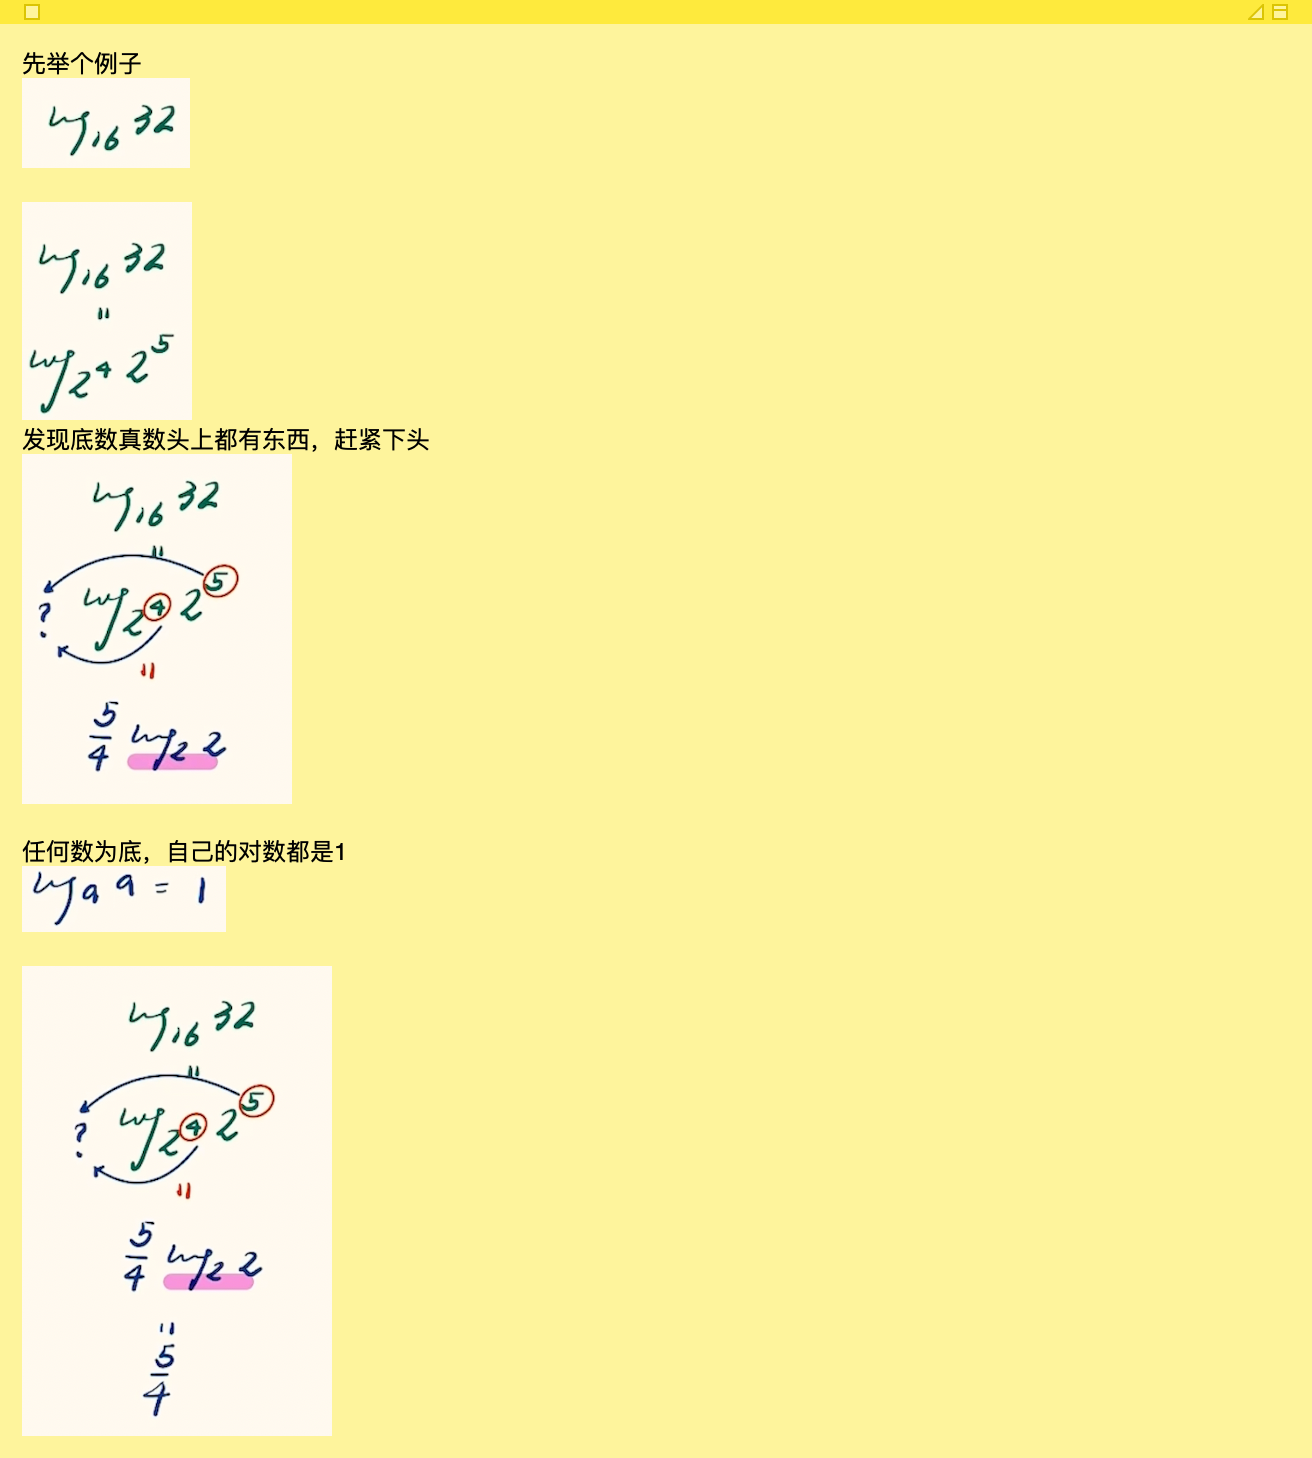 先举个例子
log₁₆ 32
log₁₆ 32
=
log₂⁴ 2⁵
发现底数真数头上都有东西，赶紧下头
log₁₆ 32
=
? log₂⁴ 2⁵
=
5/4 log₂ 2
任何数为底，自己的对数都是1
logₐ a = 1
log₁₆ 32
=
? log₂⁴ 2⁵
=
5/4 log₂ 2
=
5/4